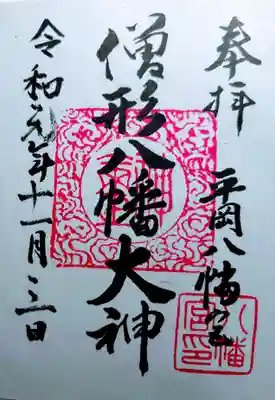 奉拝
平岡八幡宮
僧形八幡大神
八幡宮印
令和元年十一月三日